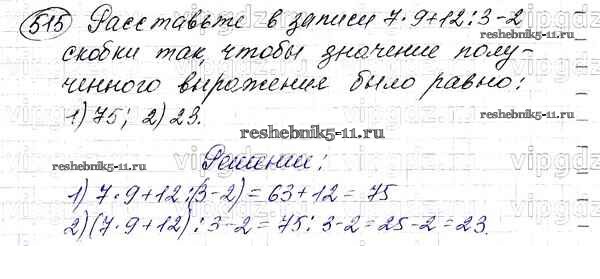 515 Расставьте в записи 7·9+12:3-2
скобки так, чтобы значение полу-
ченного выражения было равно:
1) 75; 2) 23.
reshebnik5-11.ru
reshebnik5-11.ru
Решение:
reshebnik5-11.ru
reshebnik5-11.ru
1) 7·9+12:(3-2)=63+12=75
2) (7·9+12):3-2=75:3-2=25-2=23.